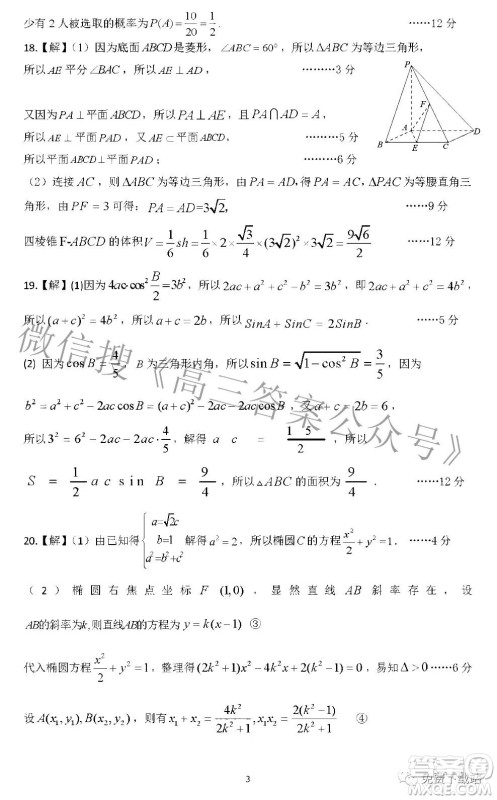 少有 2 人被选取的概率为P(A)=10/20=1/2. ……12 分
18.【解】(1) 因为底面 ABCD是菱形, ∠ABC=60°, 所以ΔABC为等边三角形,
所以 AE平分∠BAD, 所以 AE⊥AD, ………3 分
又因为PA⊥平面ABCD, 所以PA⊥AE, 且PA∩AD=A,
所以AE⊥平面PAD, 又AE⊂平面ABCD, ………5 分
所以平面ABCD⊥平面PAD; ………6 分
P
F
A
D
B
E
C
(2) 连接 AC, 则ΔABC为等边三角形, 由PA=AD, 得PA=AC, ΔPAC为等腰直角三
角形, 由 PF=3可得: PA=AD=3√2, ……9 分
四棱锥F-ABCD 的体积V=1/6 sh=1/6×2×√3/4×(3√2)²×3√2=9√6/2 ……12 分
19.【解】(1)因为4ac·cos² B/2=3b², 所以2ac+a²+c²-b²=3b², 即a²+c²+2ac=4b²,
所以(a+c)²=4b², 所以a+c=2b, 所以SinA+SinC=2SinB. ……5 分
(2) 因为cosB=4/5, B为三角形内角, 所以sinB=√(1-cos²B)=3/5, 因为
b²=a²+c²-2accosB=(a+c)²-2ac-2accosB, 又a+c=2b=6,
所以3²=6²-2ac-2ac·4/5, 解得 ac=15/2,
S=1/2 acsinB=9/4, 所以△ABC的面积为9/4. ……12 分
20.【解】(1) 由已知得{a=√2c b=1 a²=b²+c² 解得a²=2, 所以椭圆C的方程x²/2+y²=1. ……4 分
(2) 椭圆右焦点坐标 F (1,0), 显然直线 AB 斜率存在, 设
AB的斜率为k,则直线AB的方程为y=k(x-1) ③
代入椭圆方程x²/2+y²=1, 整理得(2k²+1)x²-4k²x+2(k²-1)=0, 易知Δ>0……6 分
设A(x₁,y₁),B(x₂,y₂), 则有x₁+x₂=4k²/(2k²+1),x₁x₂=2(k²-1)/(2k²+1) ④
微信搜《高三答案公众号》
3
答案圈
免费下载站